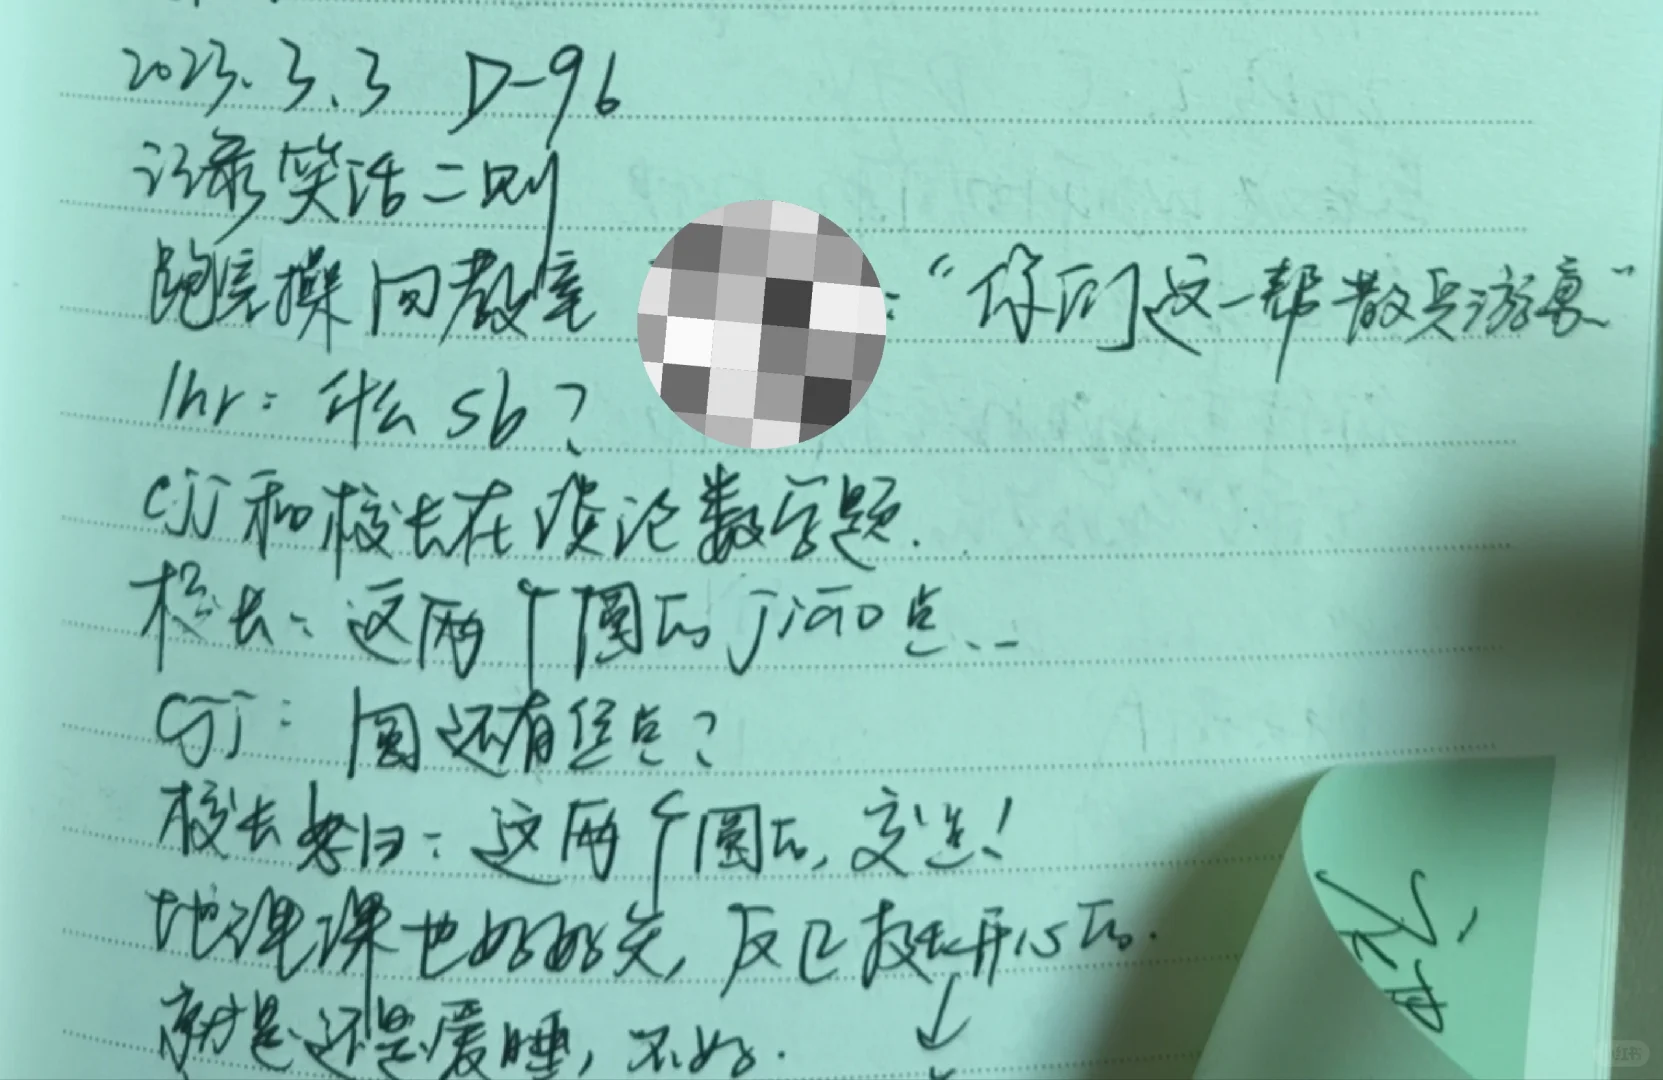 2023.3.3 D-96
记录笑话二则
跑完操回教室 : “你们这一帮散兵游离”
lhr: 什么sb?
cjj和校长在谈论数学题.
校长: 这两个圆的jiao点...
cjj: 圆还有焦点?
校长 曰: 这两个圆的,交点!
地理课也好好笑,反正挺开心的.
就是还是爱睡,不好.